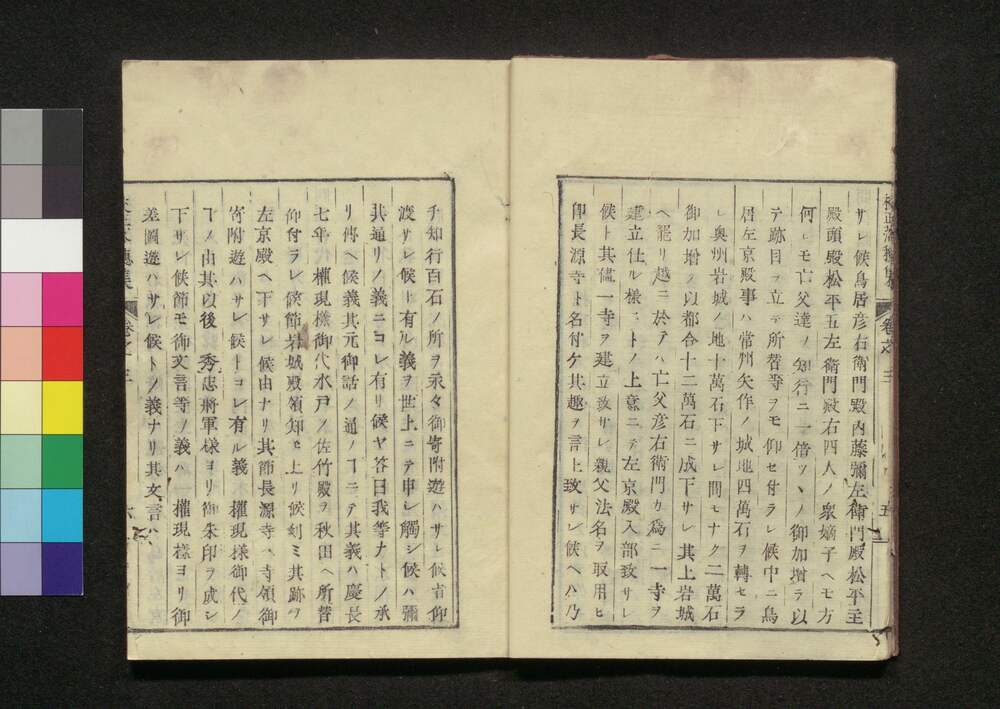 サレ候鳥居彦右衛門殿内藤彌左衛門殿松平主
殿頭殿松平五左衛門殿右四人ノ衆嫡子ヘモ方
何レモ亡父達ノ知行ニ一倍ツヽノ御加増ヲ以
テ跡目ヲ立テ所替等ヲモ仰セ付ラレ候中ニ鳥
居左京殿事ハ常州矢作ノ城地四萬石ヲ轉セラ
レ奥州岩城ノ地十萬石下サレ間モナク二萬石
御加増ノ以都合十二萬石ニ成下サレ其上岩城
ヘ罷リ越ニ於テハ亡父彦右衛門カ爲ニ一寺ヲ
建立仕ル様ニトノ上意ニテ左京殿入部致サレ
候ト其儘一寺ヲ建立致サレ親父法名ヲ取用ヒ
即長源寺ト名付ケ其趣ヲ言上致サレ候ヘハ乃
卷之三
五
チ知行百石ノ所ヲ永々御寄附遊ハサレ候旨仰
渡サレ候ト有ル義ヲ世上ニテ申シ觸シ候ハ彌
其通リノ義ニコレ有リ候ヤ答曰我等ナトノ承
リ傳ヘ候義其元御話ノ通ノヿニテ其義ハ慶長
七年 權現様御代水戸ノ佐竹殿ヲ秋田ヘ所替
仰付ラレ候節岩城殿領知モ上リ候刻ミ其跡ヲ
左京殿ヘ下サレ候由ナリ其節長源寺ヘ寺領御
寄附遊ハサレ候トコレ有ル義 權現様御代ノ
ヿノ由其以後 秀忠將軍様ヨリ御朱印ヲ成シ
下サレ候節モ御文言等ノ義ハ 權現様ヨリ御
差圖遊ハサレ候トノ義ナリ其文言ハ
卷之三
六